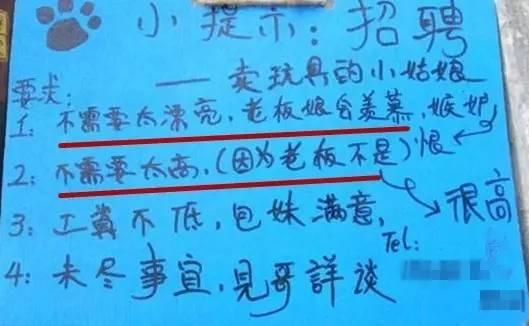 小提示:招聘
——卖玩具的小姑娘
要求:
1:不需要太漂亮,老板娘会羡慕,嫉妒
恨
2:不需要太高,(因为老板不是)
很高
3:工资不低,包妹满意,
4:未尽事宜,见哥詳谈
Tel: